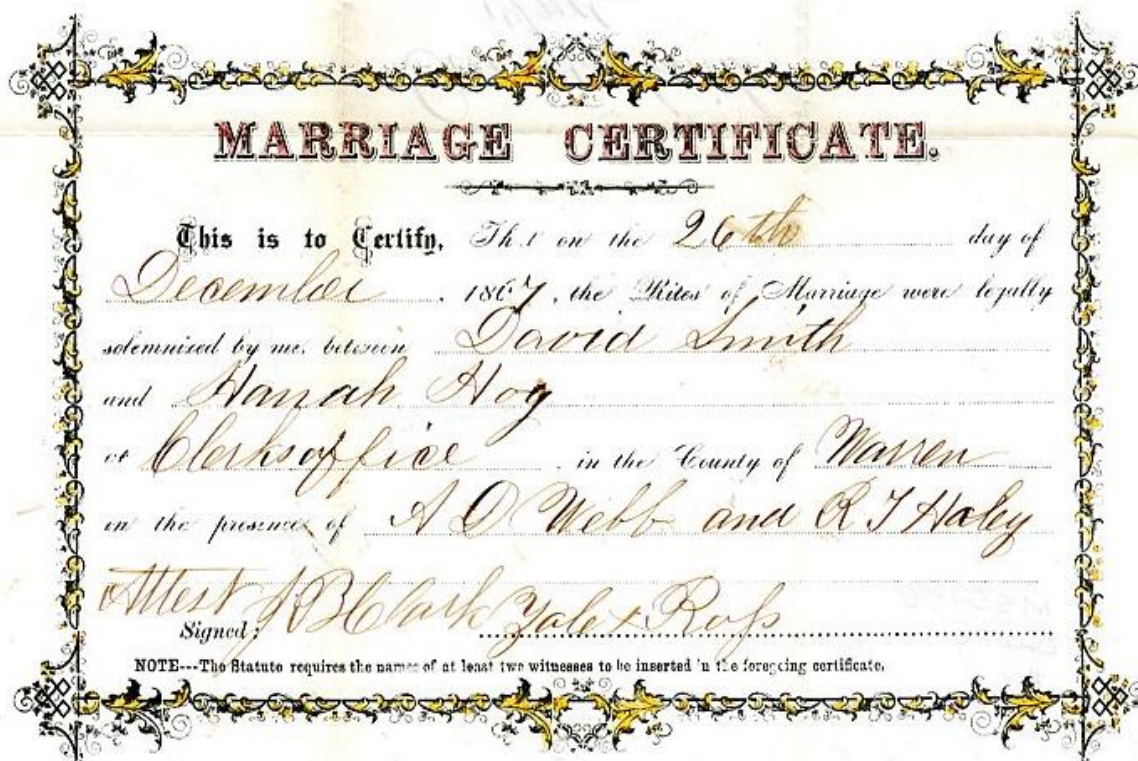 MARRIAGE CERTIFICATE.
This is to Certify, That on the 26th day of
December 1867, the Rites of Marriage were legally
solemnized by me, between David Smith
and Hanah Hog
at Clerks office in the County of Warren
in the presence of A D Webb and R T Haley
Attest J B Clark Yale x Ross
Signed;
NOTE---The Statute requires the names of at least two witnesses to be inserted in the foregoing certificate.